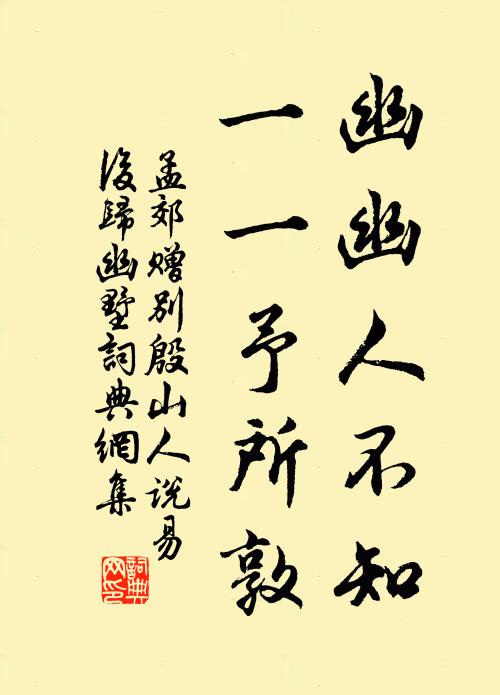 幽幽人不知
一一予所敦
孟郊贈別殷山人說易
後歸幽墅詞典網集
詞典
网印